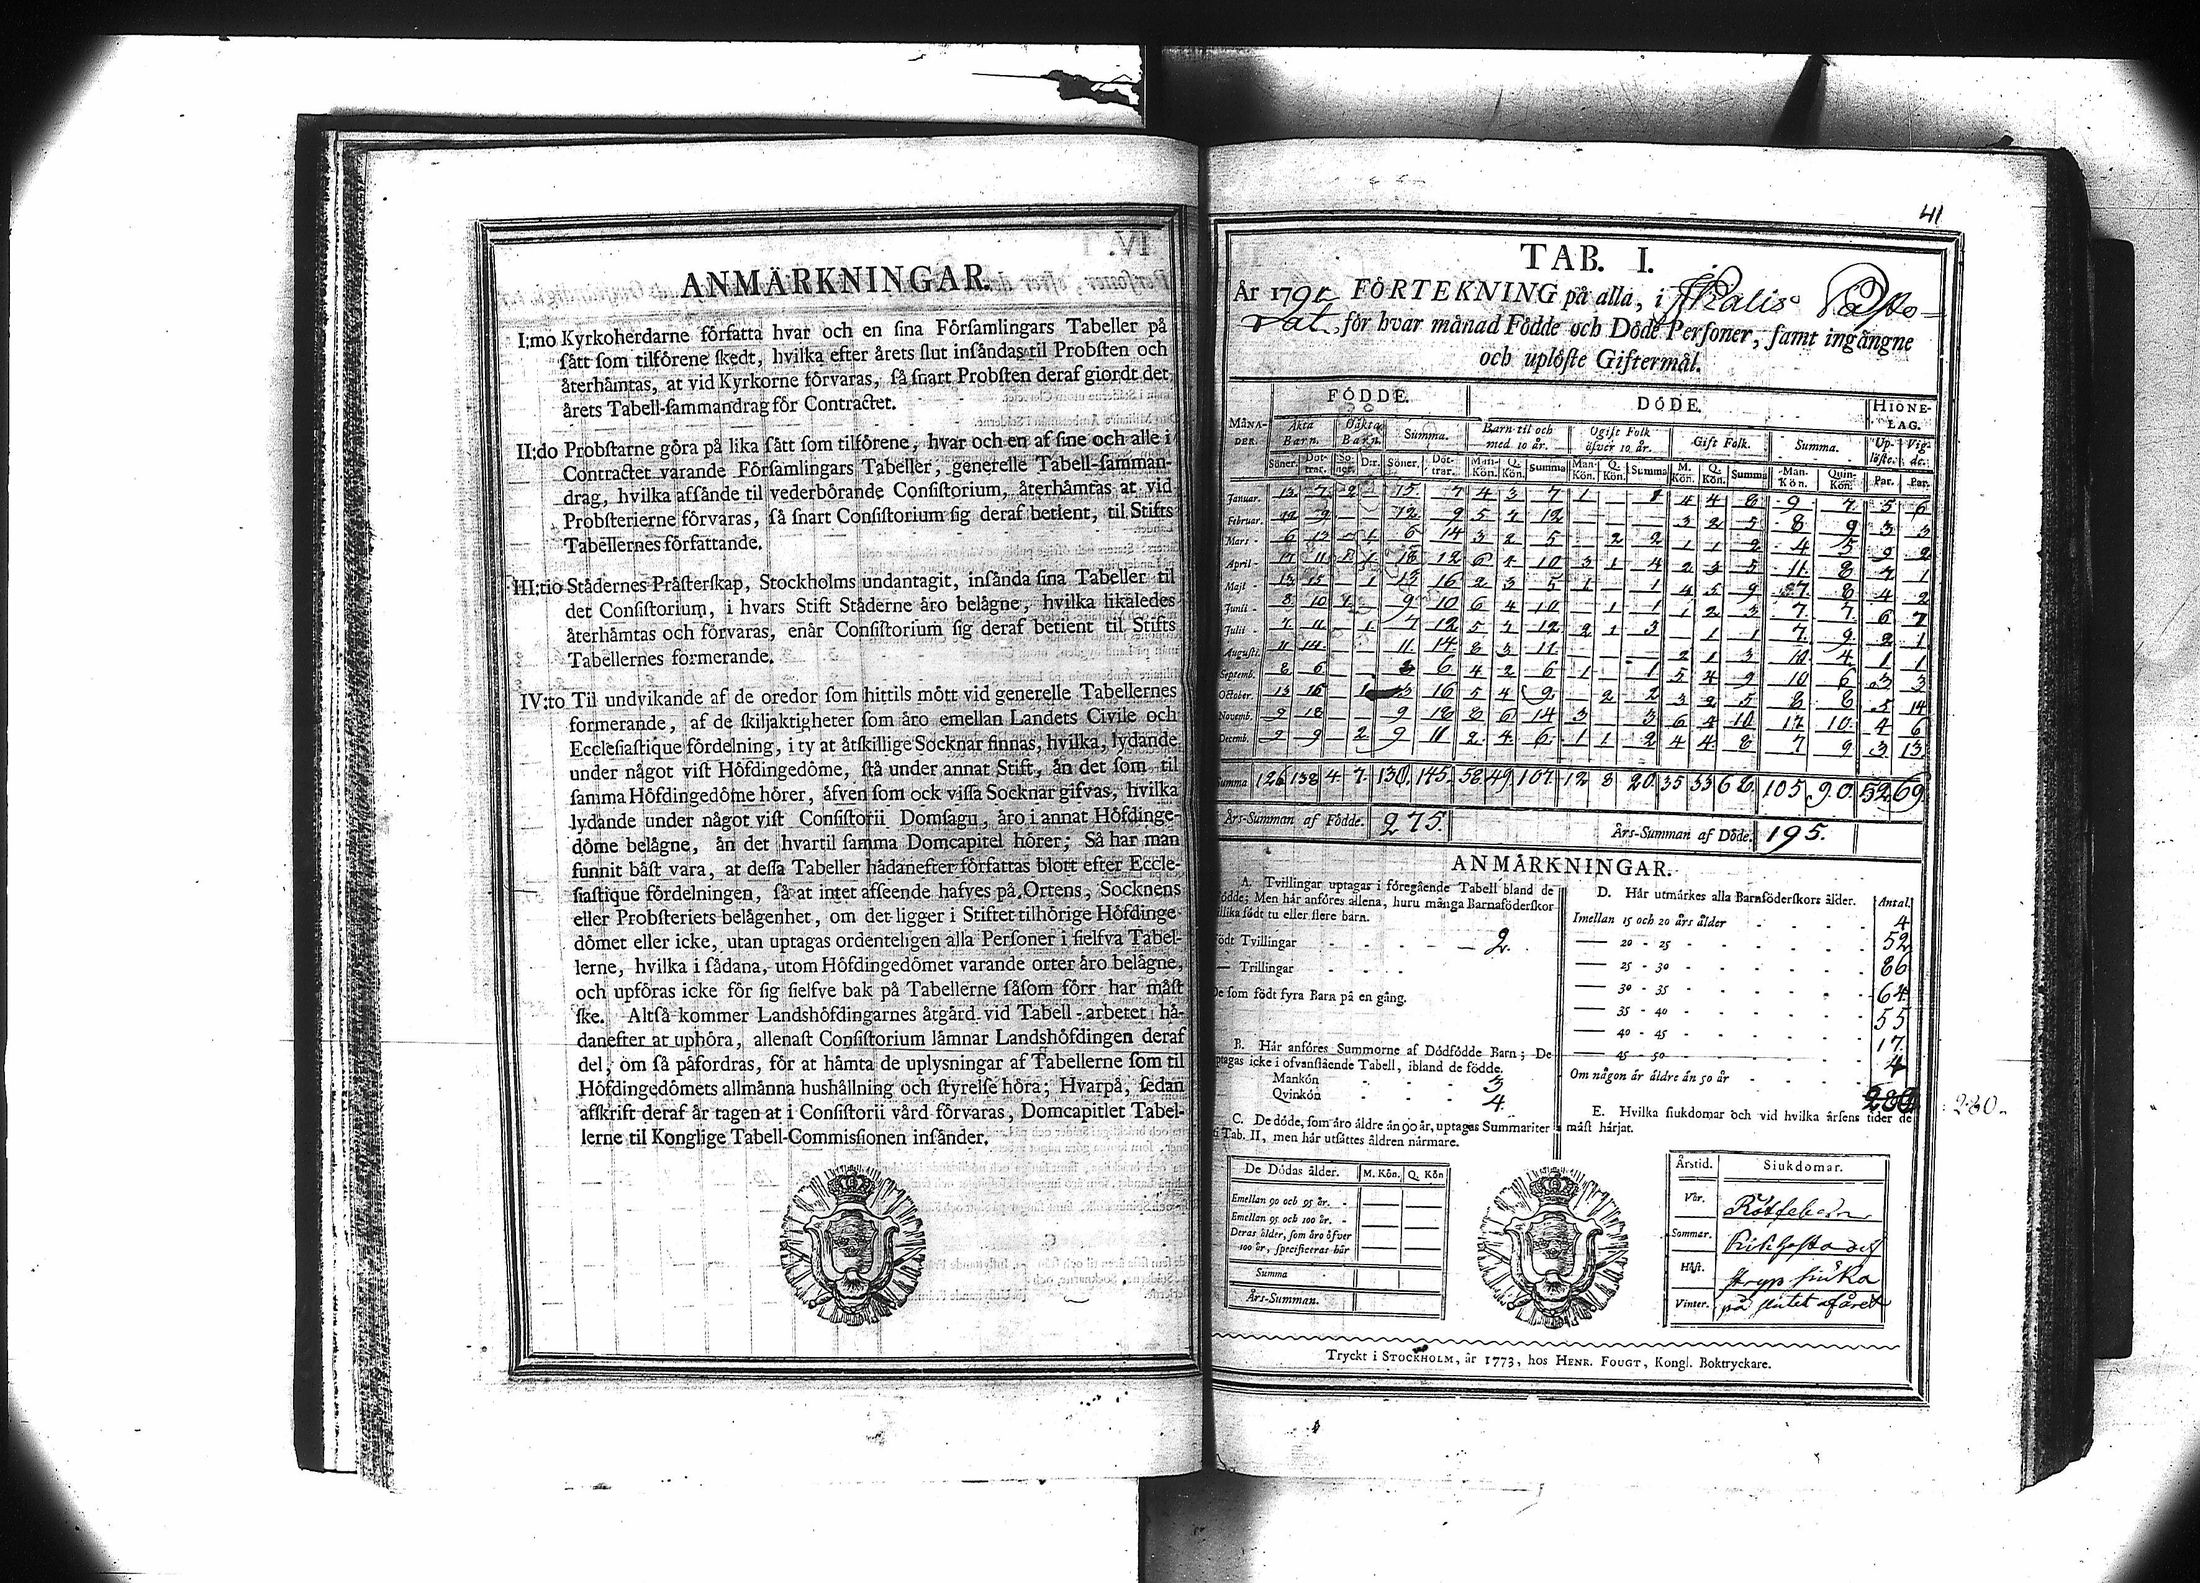 ANMÄRKNINGAR.
I:mo Kyrkoherdarne författa hvar och en sina Församlingars Tabeller på
sätt som tilförene skedt, hvilka efter årets slut insändas til Probsten och
återhämtas, at vid Kyrkorne förvaras, så snart Probsten deraf giordt det
årets Tabell-sammandrag för Contractet.
II:do Probstarne göra på lika sätt som tilförene, hvar och en af sine och alle i
Contractet varande Församlingars Tabeller, generelle Tabell-samman-
drag, hvilka afsände til vederbörande Consistorium, återhämtas at vid
Probsterierne förvaras, så snart Consistorium sig deraf betient, til Stifts
Tabellernes författande.
III:tio Städernes Prästerskap, Stockholms undantagit, insända sina Tabeller til
det Consistorium, i hvars Stift Städerne äro belägne, hvilka likaledes
återhämtas och förvaras, enär Consistorium sig deraf betient til Stifts
Tabellernes formerande.
IV:to Til undvikande af de oredor som hittils mött vid generelle Tabellernes
formerande, af de skiljaktigheter som äro emellan Landets Civile och
Ecclesiastique fördelning, i ty at åtskillige Socknar finnas, hvilka, lydande
under något vist Höfdingedöme, stå under annat Stift, än det som til
samma Höfdingedöme hörer, äfven som ock vissa Socknar gifvas, hvilka
lydande under något vist Consistorii Domsagu, äro i annat Höfdinge-
döme belägne, än det hvartil samma Domcapitel hörer; Så har man
funnit bäst vara, at dessa Tabeller hädanefter författas blott efter Eccle-
siastique fördelningen, så at intet afseende hafves på Ortens, Socknens
eller Probsteriets belägenhet, om det ligger i Stiftet tilhörige Höfdinge-
dömet eller icke, utan uptagas ordenteligen alla Personer i sielfva Tabel-
lerne, hvilka i sådana, utom Höfdingedömet varande orter äro belägne,
och upföras icke för sig sielfve bak på Tabellerne såsom förr har mäst
ske. Altså kommer Landshöfdingarnes åtgärd vid Tabell-arbetet hä-
danefter at uphöra, allenast Consistorium lämnar Landshöfdingen deraf
del, om så påfordras, för at hämta de uplysningar af Tabellerne som til
Höfdingedömets allmänna hushållning och styrelse höra; Hvarpå, sedan
afskrift deraf är tagen at i Consistorii vård förvaras, Domcapitlet Tabel-
lerne til Konglige Tabell-Commissionen insänder.
41
TAB. I.
År 1791 FÖRTEKNING på alla, i Kalis Pasto-
rat, för hvar månad Födde och Döde Personer, samt ingångne
och uplöste Giftermål.
MÅNA-DER. FÖDDE. DÖDE. HIONE-LAG.
Äkta Barn. Oäkta Barn. Summa. Barn til och med 10 år. Ogift Folk öfver 10 år. Gift Folk. Summa. Up-löste. Vig-de.
Söner. Döt-trar. Sö-ner. Dr. Söner. Döt-trar. Man-Kön. Q. Kön. Summa Man-Kön. Q. Kön. Summa M. Kön. Q. Kön. Summa Man-Kön. Quin-Kön. Par. Par.
Januar. 13 7 2 15 7 4 3 7 1 1 4 4 8 9 7 5 6
Februar. 12 9 12 9 5 7 12 3 2 5 8 9 3 3
Mars 6 13 1 6 14 3 2 5 2 2 1 1 2 4 5 9 2
April 17 11 1 1 18 12 6 4 10 3 1 4 2 3 5 11 8 7 1
Maji 13 15 1 13 16 2 3 5 1 1 4 5 9 7 8 4 2
Junii 8 10 1 9 10 6 4 10 1 1 1 2 3 7 7 6 7
Julii 7 11 1 7 12 5 7 12 2 1 3 1 1 7 9 2 1
Augusti. 11 14 11 14 8 3 11 2 1 3 10 4 1 1
Septemb. 8 6 8 6 4 2 6 1 1 5 4 9 10 6 3 3
October. 13 15 1 13 16 5 4 9 2 2 3 2 5 8 8 5 14
Novemb. 9 18 9 18 8 6 14 3 3 6 4 10 17 10 4 6
Decemb. 9 9 2 9 11 2 4 6 1 1 2 4 4 8 7 9 3 13
Summa 126 138 4 7 130 145 58 49 107 12 8 20 35 33 68 105 90 52 69
Års-Summan af Födde. 275. Års-Summan af Döde. 195.
ANMÄRKNINGAR.
A. Tvillingar uptagas i föregående Tabell bland de
födde; Men här anföres allena, huru många Barnaföderskor
tillika födt tu eller flere barn.
Födt Tvillingar 2.
— Trillingar
De som födt fyra Barn på en gång.
B. Här anföres Summorne af Dödfödde Barn; De
uptagas icke i ofvanstående Tabell, ibland de födde.
Mankön 3
Qvinkön 4.
C. De döde, som äro äldre än 90 år, uptagas Summariter
i Tab. II, men här utsättes åldren närmare.
De Dödas ålder. M. Kön. Q. Kön
Emellan 90 och 95 år.
Emellan 95 och 100 år.
Deras ålder, som äro öfver
100 år, specificeras här
Summa
Års-Summan.
D. Här utmärkes alla Barnföderskors ålder. Antal
Imellan 15 och 20 års ålder 4
— 20 - 25 52
— 25 - 30 86
— 30 - 35 64
— 35 - 40 55
— 40 - 45 17
— 45 - 50 4
Om någon är äldre än 50 år
280.
E. Hvilka siukdomar och vid hvilka årsens tider de
mäst härjat.
Årstid. Siukdomar.
Vår. Rötfeber
Sommar. Kikhosta och
Höst. Stryp siuka
Vinter. på slutet af året
Tryckt i STOCKHOLM, år 1773, hos HENR. FOUGT, Kongl. Boktryckare.